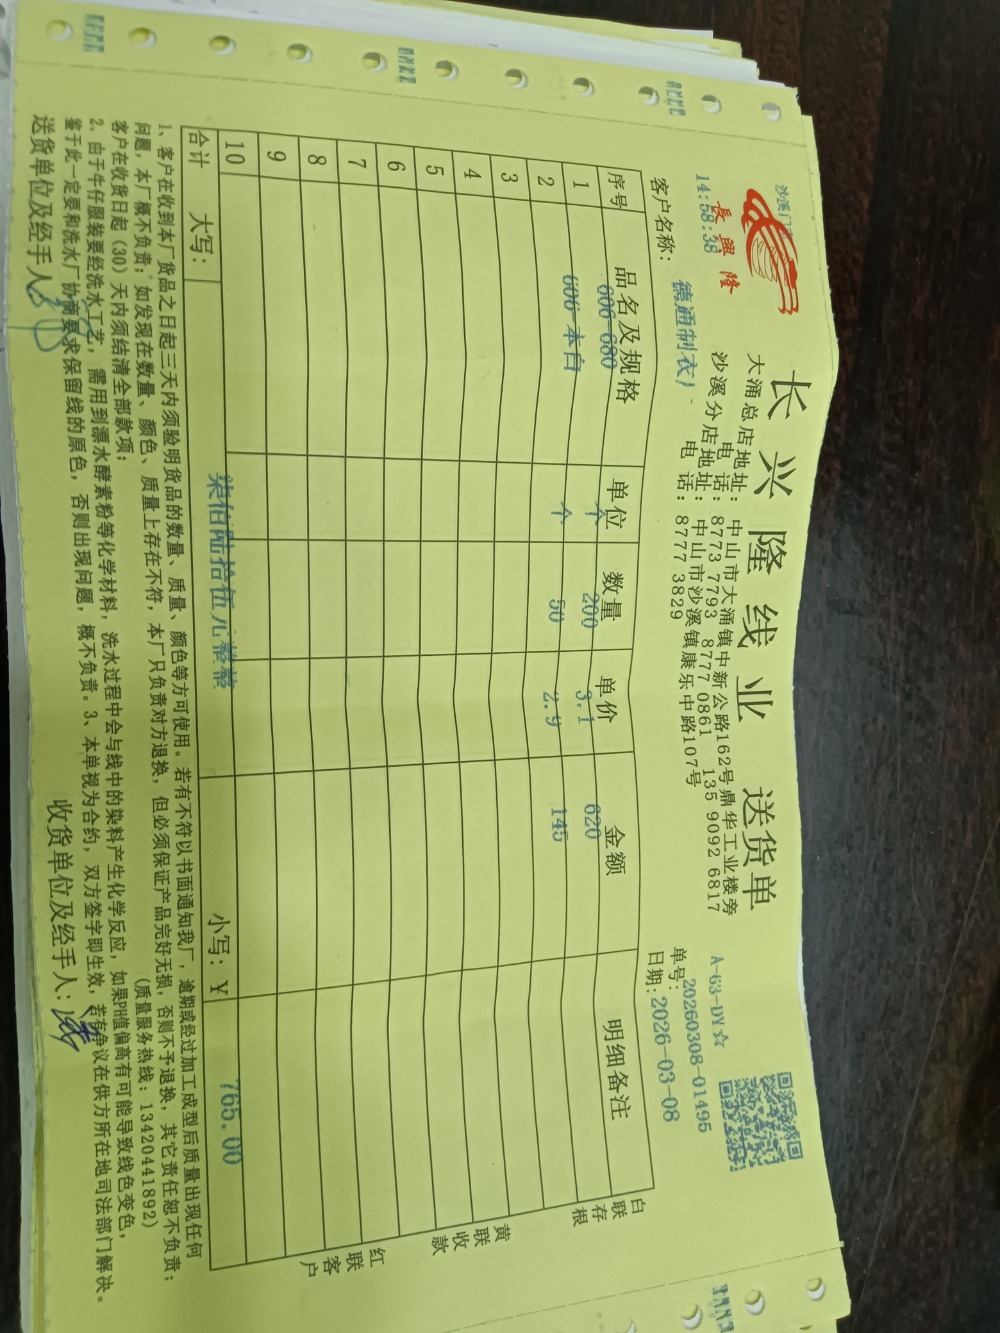 沙溪门
14:58:38
長興隆
长兴隆线业 送货单
大涌总店地址：中山市大涌镇中新公路162号鼎华工业楼旁
电话：8773 7793 8777 0861 135 9092 6817
沙溪分店地址：中山市沙溪镇康乐中路107号
电话：8777 3829
A-63-DY☆
单号：20260308-01495
客户名称：德通制衣）
日期：2026-03-08
序号 品名及规格 单位 数量 单价 金额 明细备注
1 606-680 个 200 3.1 620
2 606-本白 个 50 2.9 145
3
4
5
6
7
8
9
10
合计 大写：柒佰陆拾伍元整 小写：¥ 765.00
白联存根
黄联收款
红联客户
1、客户在收到本厂货品之日起三天内须验明货品的数量、质量、颜色等方可使用。若有不符以书面通知我厂，逾期或经过加工成型后质量出现任何
问题，本厂概不负责；如发现在数量、颜色、质量上存在不符，本厂只负责对方退换，但必须保证产品完好无损，否则不予退换，其它责任恕不负责；
客户在收货日起（30）天内须结清全部款项； （质量服务热线：13420441892）
2、由于牛仔服装要经洗水工艺，需用到漂水酵素粉等化学材料，洗水过程中会与线中的染料产生化学反应，如果PH值偏高有可能导致线色变色，
鉴于此一定要和洗水厂协商要求保留线的原色，否则出现问题，概不负责。3、本单视为合约，双方签字即生效，若有争议在供方所在地司法部门解决。
送货单位及经手人： 收货单位及经手人：